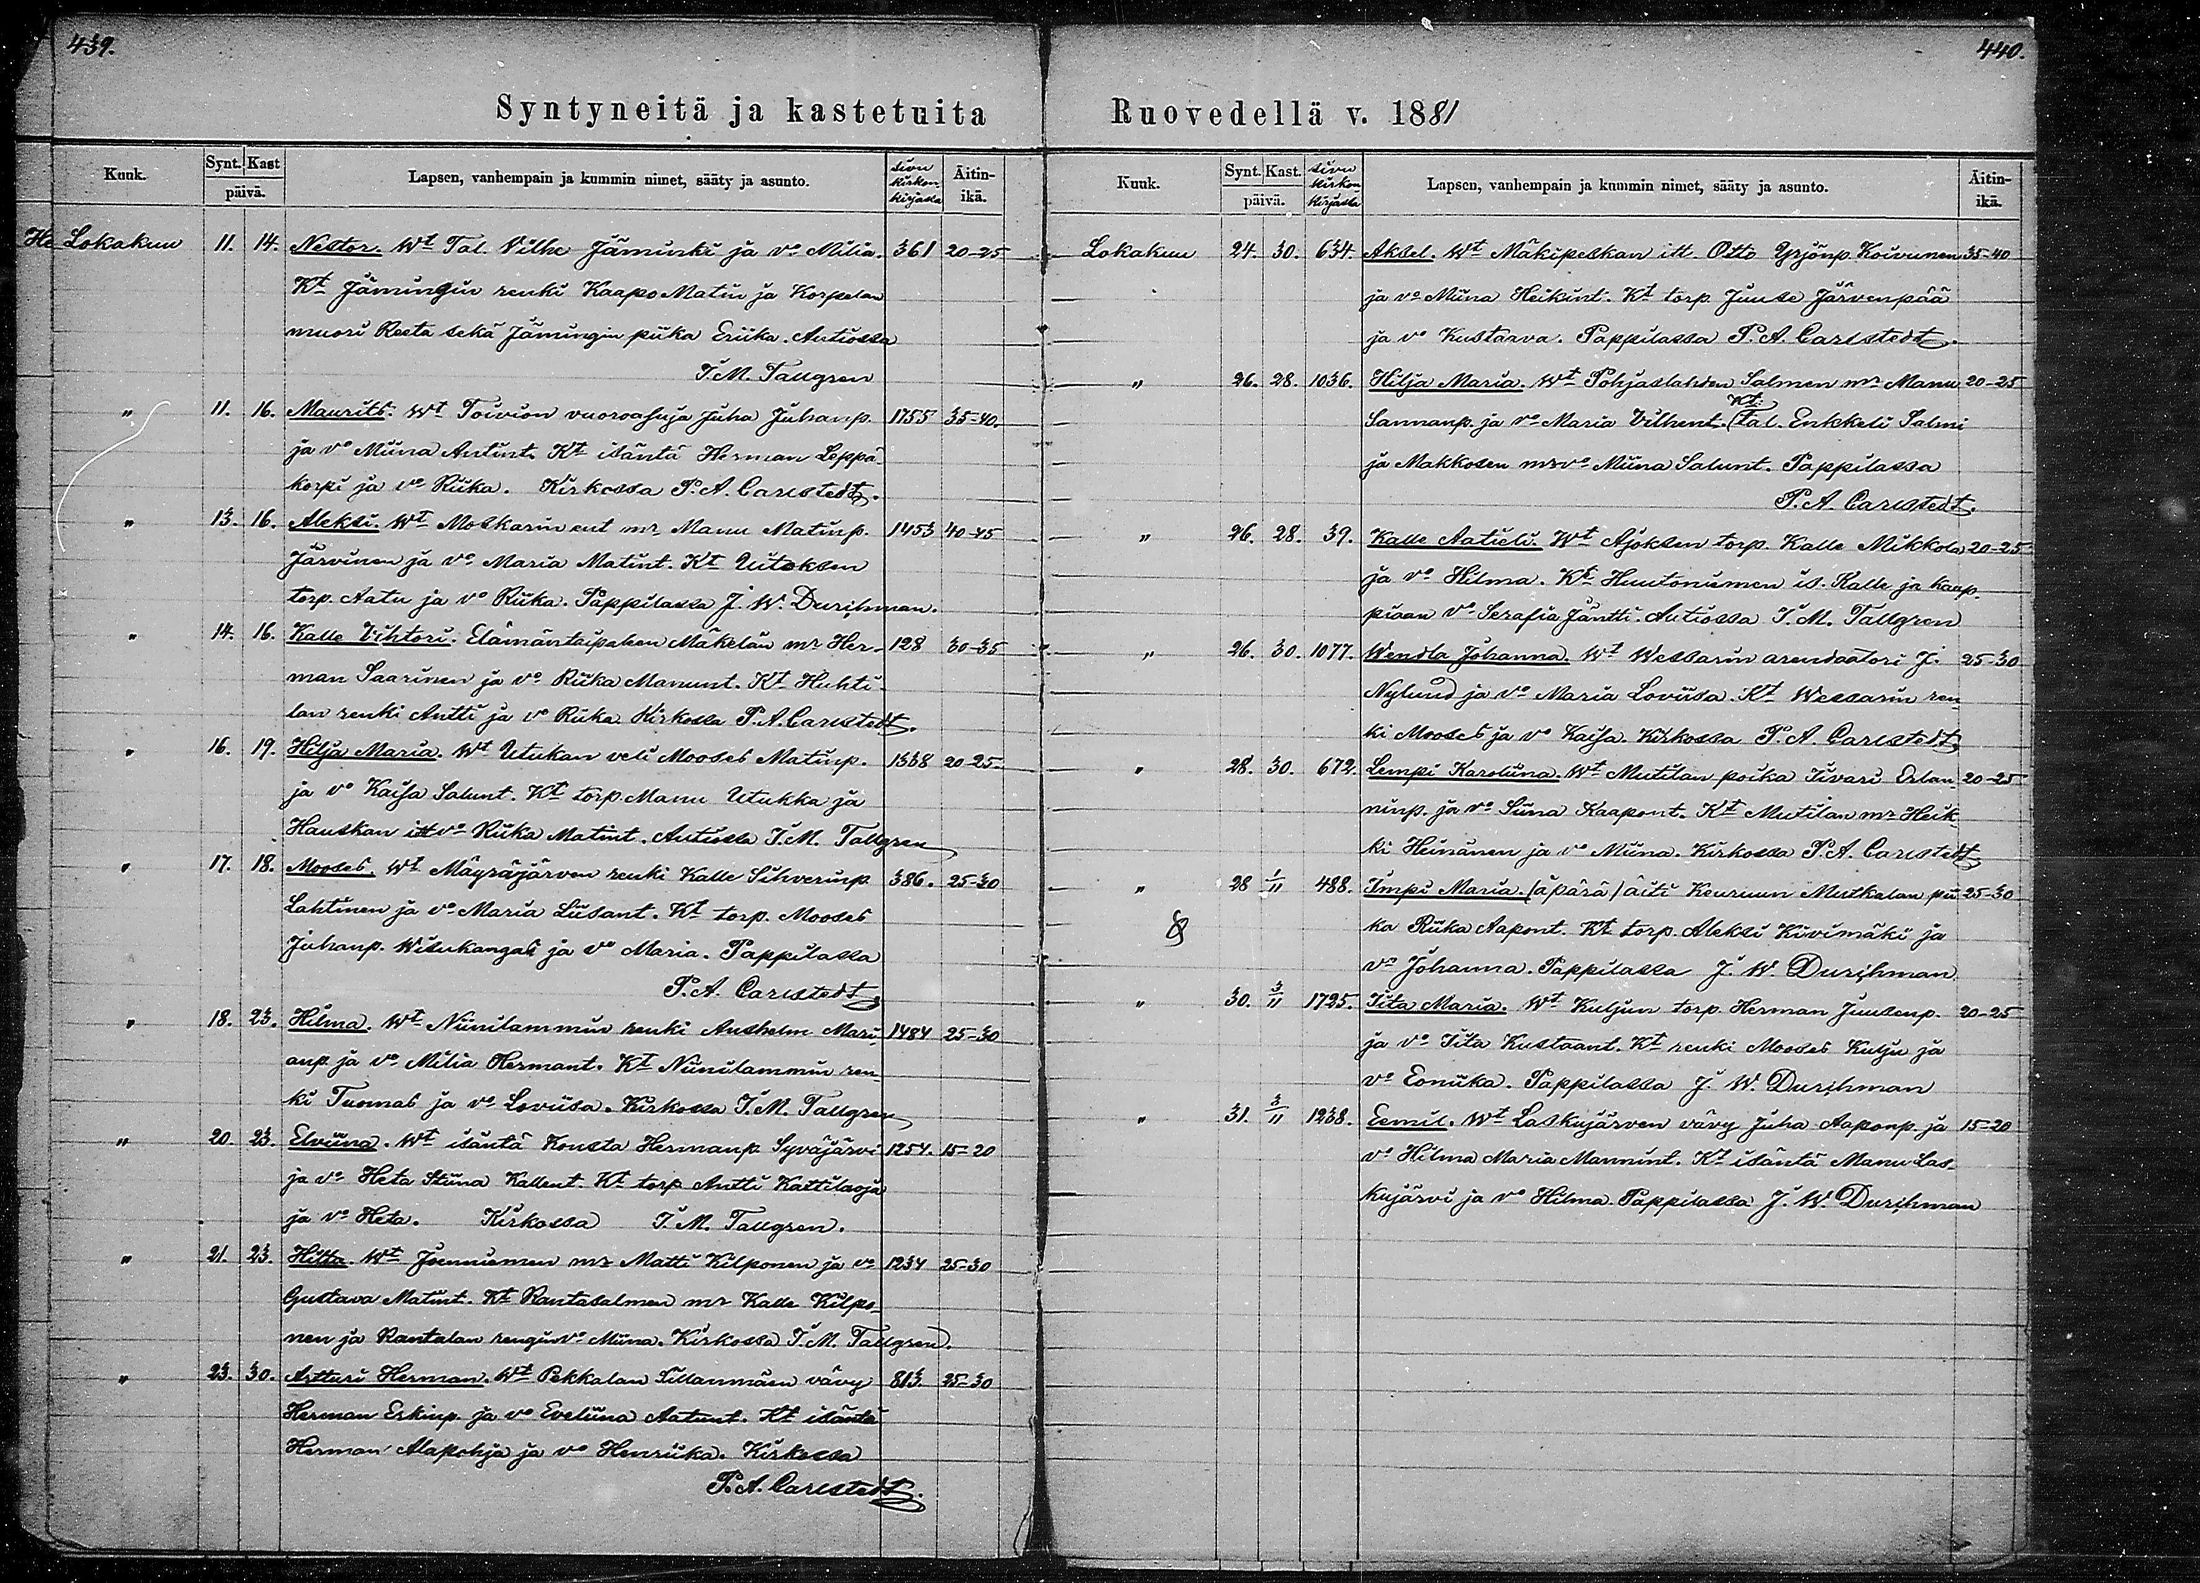 439.
Syntyneitä ja kastetuita
Kuuk. Synt. Kast päivä. Lapsen, vanhempain ja kummin nimet, sääty ja asunto. sivu kirkon kirjassa Äitin-ikä.
Lokakuu 11. 14. Nestor. Wt Tal. Vilhe Jäminki ja vo Milia. 361 20-25
Kt Jämingin renki Kaapo Matin ja Korpelan
muori Reeta sekä Jämingin piika Eriika. Autiossa
I. M. Tallgren
" 11. 16. Maurits. Wt Toivion vuoroasuja Juha Juhanp. 1755 35-40.
ja vo Miina Antint. Kt isäntä Herman Leppä-
korpi ja vo Riika. Kirkossa P. A. Carlstedt.
" 13. 16. Aleksi. Wt Moskarin ent mr Manu Matinp. 1453 40-45
Järvinen ja vo Maria Matint. Kt Uitoksen
torp. Aatu ja vo Riika. Pappilassa J. W. Durchman.
" 14. 16. Kalle Vihtori. Elämäntaipaleen Mäkelän mr Her- 128 30-35
man Saarinen ja vo Riika Manunt. Kt Huhti-
lan renki Antti ja vo Riika Kirkossa P. A. Carlstedt.
" 16. 19. Hilja Maria. Wt Utukan veli Mooses Matinp. 1338 20-25.
ja vo Kaisa Salunt. Kt torp. Manu Utukka ja
Hauskan itt vo Riika Matint. Autiossa I. M. Tallgren
" 17. 18. Mooses. Wt Mäyräjärven renki Kalle Sihverinp. 386. 25-30
Lahtinen ja vo Maria Liisant. Kt torp. Mooses
Juhanp. Wisukangas ja vo Maria. Pappilassa
P. A. Carlstedt
" 18. 23. Hilma. Wt Niinilammin renki Anshelm Mari- 1484 25-30
anp. ja vo Milia Hermant. Kt Niinilammin ren-
ki Tuomas ja vo Loviisa. Kirkossa I. M. Tallgren
" 20. 23. Elviina. Wt isäntä Konsta Hermanp. Syväjärvi 1254. 15-20
ja vo Heta Stiina Kallent. Kt torp Antti Kattilaoja
ja vo Heta. Kirkossa I. M. Tallgren.
" 21. 23. Hilta. Wt Junniemen mr Matti Kilponen ja vo 1234 25-30
Gustava Matint. Kt Rantasalmen mr Kalle Kilpo-
nen ja Rantalan rengin vo Miina. Kirkossa I. M. Tallgren.
" 23. 30. Artturi Herman. Wt Pekkalan Sillanmäen vävy 813. 25-30
Herman Erkinp. ja vo Eveliina Aatunt. Kt isäntä
Herman Alapohja ja vo Henriika. Kirkossa
P. A. Carlstedt.
440.
Ruovedellä v. 1881
Kuuk. Synt. Kast. päivä. sivu kirkon kirjassa Lapsen, vanhempain ja kummin nimet, sääty ja asunto. Äitin-ikä.
Lokakuu 24. 30. 634. Aksel. Wt Mäkipeskan itt Otto Yrjönp. Koivunen 35-40
ja vo Miina Heikint. Kt torp Juuse Järvenpää
ja vo Kustaava. Pappilassa P. A. Carlstedt.
" 26. 28. 1036. Hilja Maria. Wt Pohjaslahden Salmen mr Manu 20-25
Sannanp. ja vo Maria Vilhent. Kt: Tal. Enkkeli Salmi
ja Makkosen mr vo Miina Salunt. Pappilassa
P. A. Carlstedt.
" 26. 28. 39. Kalle Aatieli. Wt Ajoksen torp. Kalle Mikkola 20-25
ja vo Hilma. Kt Huutoniemen is. Kalle ja kaup-
piaan vo Serafia Jäntti. Autiossa I. M. Tallgren
" 26. 30. 1077. Wendla Johanna. Wt Wessarin arendaatori J. 25-30
Nylund ja vo Maria Loviisa. Kt Wessarin ren-
ki Mooses ja vo Kaisa. Kirkossa P. A. Carlstedt
" 28. 30. 672. Lempi Karoliina. Wt Mutilan poika Iivari Erlan- 20-25
ninp. ja vo Siina Kaapont. Kt Mutilan mr Heik-
ki Heinänen ja vo Miina. Kirkossa P. A. Carlstedt
" 28 1/11 488. Impi Maria. (äpärä) äiti Keuruun Mutkalan pii- 25-30
ka Riika Aapont. Kt torp. Aleksi Kivimäki ja
vo Johanna. Pappilassa J. W. Durchman
" 30. 3/11 1725. Iita Maria. Wt Kuljun torp. Herman Juusenp. 20-25
ja vo Iita Kustaant. Kt renki Mooses Kulju ja
vo Eoniika. Pappilassa J. W. Durchman
" 31. 3/11 1238. Eemil. Wt Laskujärven vävy Juha Aaponp. ja 15-20
vo Hilma Maria Mannint. Kt isäntä Manu Las-
kujärvi ja vo Hilma. Pappilassa J. W. Durchman